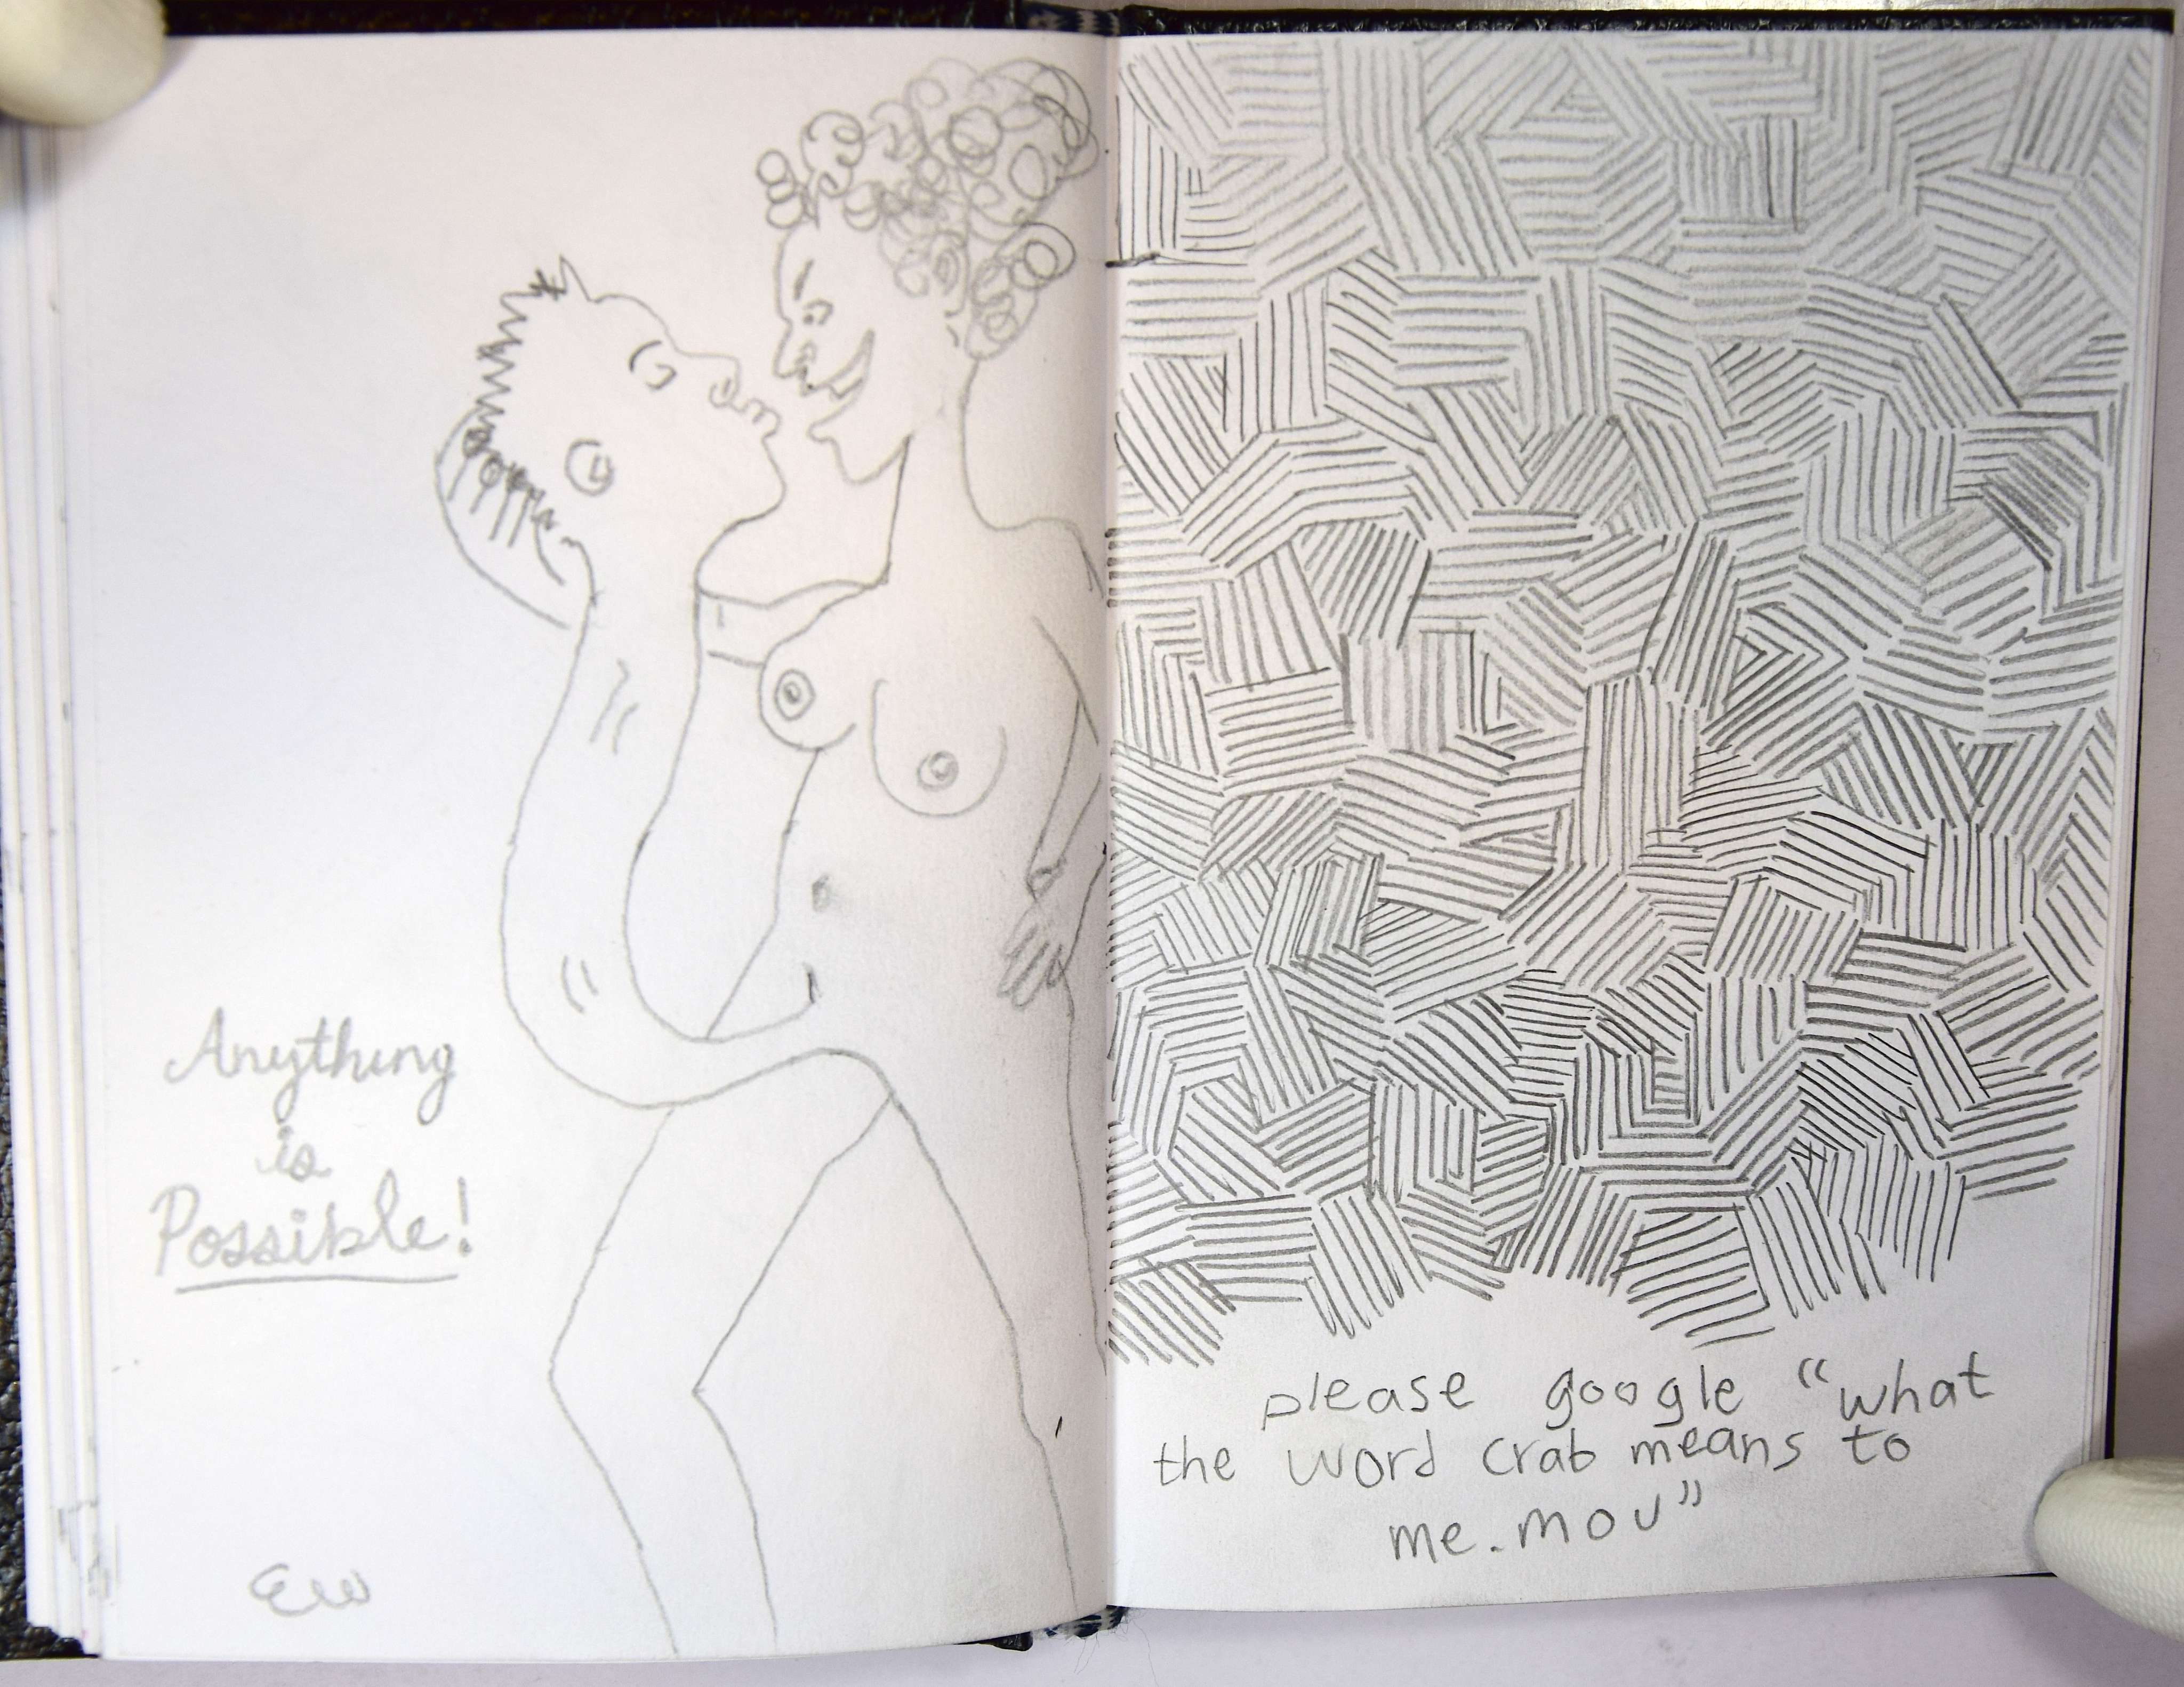 Anything
is
Possible!
EW
please google "what
the word crab means to
me.mov"